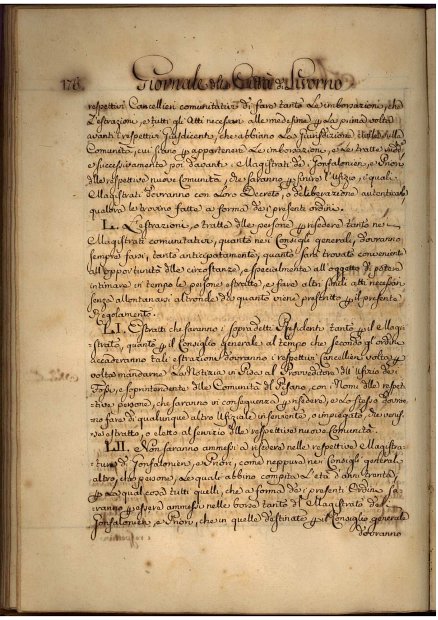 178. Giornale della Città di Livorno
respettivi Cancellieri comunitativi di fare tanto le imborsazioni, che
l'estrazioni, e tutti gli atti necessari alle medesime per la prima volta
avanti i respettivi Giusdicenti, che abbiano la giurisdizione civile nella
Comunità, cui siano per appartenere le imborsazioni, e le tratte sudd.e
e successivamente poi davanti i Magistrati de' Gonfalonieri, e Priori
delle respettive nuove Comunità, che saranno per finire l'ufizio, i quali
Magistrati dovranno con loro Decreto, o deliberazione autenticarle
qualora le trovino fatte a forma de' presenti ordini.
L. L'estrazioni, o tratte delle persone per risedere tanto ne
Magistrati comunitativi, quanto nei Consigli generali, dovranno
sempre farsi, tanto anticipatamente, quanto sarà trovato conveniente
all'opportunità delle circostanze, e specialmente all'oggetto di potere
intimare in tempo le persone estratte, e fare altri simili atti necessari
senza allontanarsi altronde da quanto viene prescritto per il presente
Regolamento.
LI. Estratti che saranno i sopradetti Residenti tanto per il Magi-
strato, quanto per il Consiglio Generale, al tempo che secondo gli ordini
accaderanno tali estrazioni dovranno i respettivi Cancellieri volta per
volta mandarne la notizia in Pisa al Provveditore dell'Ufizio de'
Fossi, e soprintendente delle Comunità del Pisano, con i Nomi delle respet-
tive persone, che saranno in conseguenza per risedere, e lo stesso dovran-
no fare di qualunque altro Ufiziale inserviente, o impiegato, che venis-
se estratto, o eletto al servizio delle respettive nuove Comunità.
LII. Non saranno ammessi a risedere nelle respettive Magistra-
ture di Gonfalonieri, e Priori, come neppure nei Consigli generali
altro, che persone, le quali abbino compito l'età d'anni trenta
per la qual cosa tutti quelli, che a forma de' presenti Ordini sa-
ranno per essere ammessi nelle borse tanto del Magistrato de'
Gonfalonieri, e Priori, che in quelle destinate per il Consiglio generale
dovranno